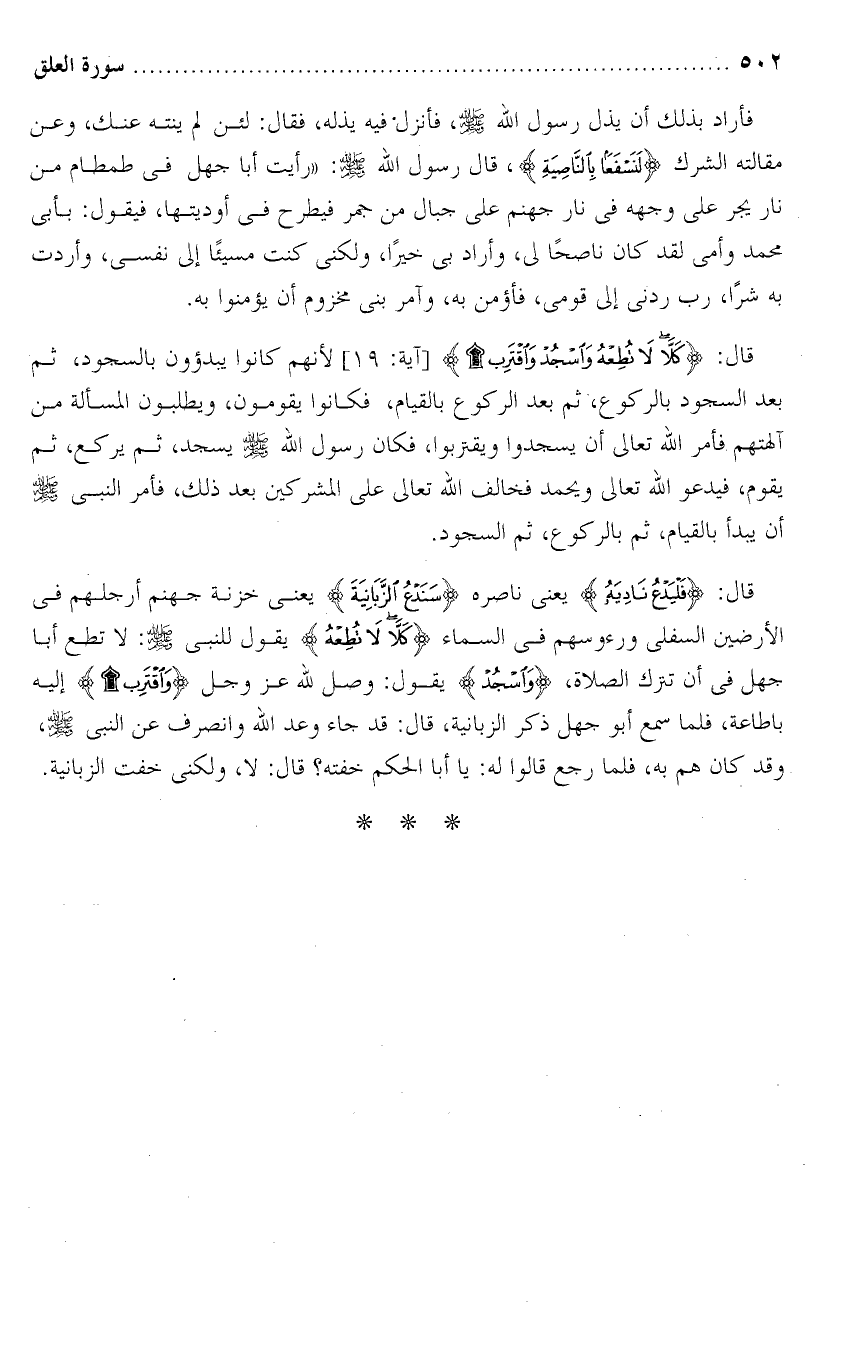 ٥٠٢ ........................................................................ سورة العلق
فأراد بذلك أن يذل رسول الله ﷺ، فأنزل فيه يذله، فقال: لئن لم ينته عنك، وعن
مقالته الشرك ﴿لَنَسْفَعًا بِٱلنَّاصِيَةِ﴾، قال رسول الله ﷺ: «رأيت أبا جهل فى طمطام من
نار يجر على وجهه فى نار جهنم على جبال من جمر فيطرح فى أوديتها، فيقول: بأبى
محمد وأمى لقد كان ناصحًا لى، وأراد بى خيرًا، ولكنى كنت مسيئًا إلى نفسى، وأردت
به شرًا، رب ردنى إلى قومى، فأؤمن به، وآمر بنى مخزوم أن يؤمنوا به.
قال: ﴿كَلَّا لَا تُطِعْهُ وَٱسْجُدْ وَٱقْتَرِب ۩﴾ [آية: ١٩] لأنهم كانوا يبدؤون بالسجود، ثم
بعد السجود بالركوع، ثم بعد الركوع بالقيام، فكانوا يقومون، ويطلبون المسألة من
آلهتهم فأمر الله تعالى أن يسجدوا ويقتربوا، فكان رسول الله ﷺ يسجد، ثم يركع، ثم
يقوم، فيدعو الله تعالى ويحمد فخالف الله تعالى على المشركين بعد ذلك، فأمر النبى ﷺ
أن يبدأ بالقيام، ثم بالركوع، ثم السجود.
قال: ﴿فَلْيَدْعُ نَادِيَهُ﴾ يعنى ناصره ﴿سَنَدْعُ ٱلزَّبَانِيَةَ﴾ يعنى خزنة جهنم أرجلهم فى
الأرضين السفلى ورءوسهم فى السماء ﴿كَلَّا لَا تُطِعْهُ﴾ يقول للنبى ﷺ: لا تطع أبا
جهل فى أن تترك الصلاة، ﴿وَٱسْجُدْ﴾ يقول: وصل لله عز وجل ﴿وَٱقْتَرِب ۩﴾ إليه
باطاعة، فلما سمع أبو جهل ذكر الزبانية، قال: قد جاء وعد الله وانصرف عن النبى ﷺ،
وقد كان هم به، فلما رجع قالوا له: يا أبا الحكم خفته؟ قال: لا، ولكنى خفت الزبانية.
* * *